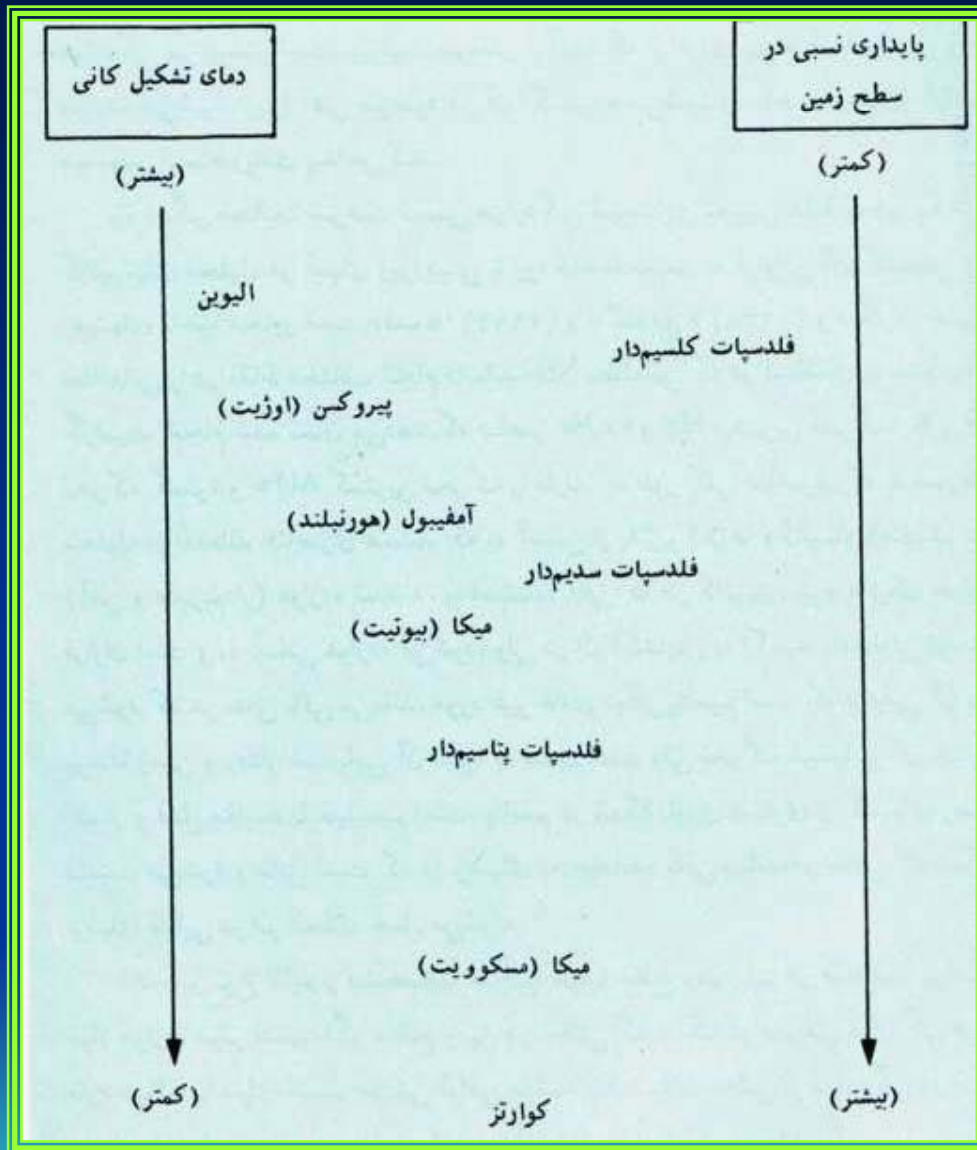 پایداری نسبی در
سطح زمین
دمای تشکیل کانی
(کمتر)
(بیشتر)
الیوین
فلدسپات کلسیم‌دار
پیروکسن (اوژیت)
آمفیبول (هورنبلند)
فلدسپات سدیم‌دار
میکا (بیوتیت)
فلدسپات پتاسیم‌دار
میکا (مسکوویت)
(بیشتر)
(کمتر)
کوارتز